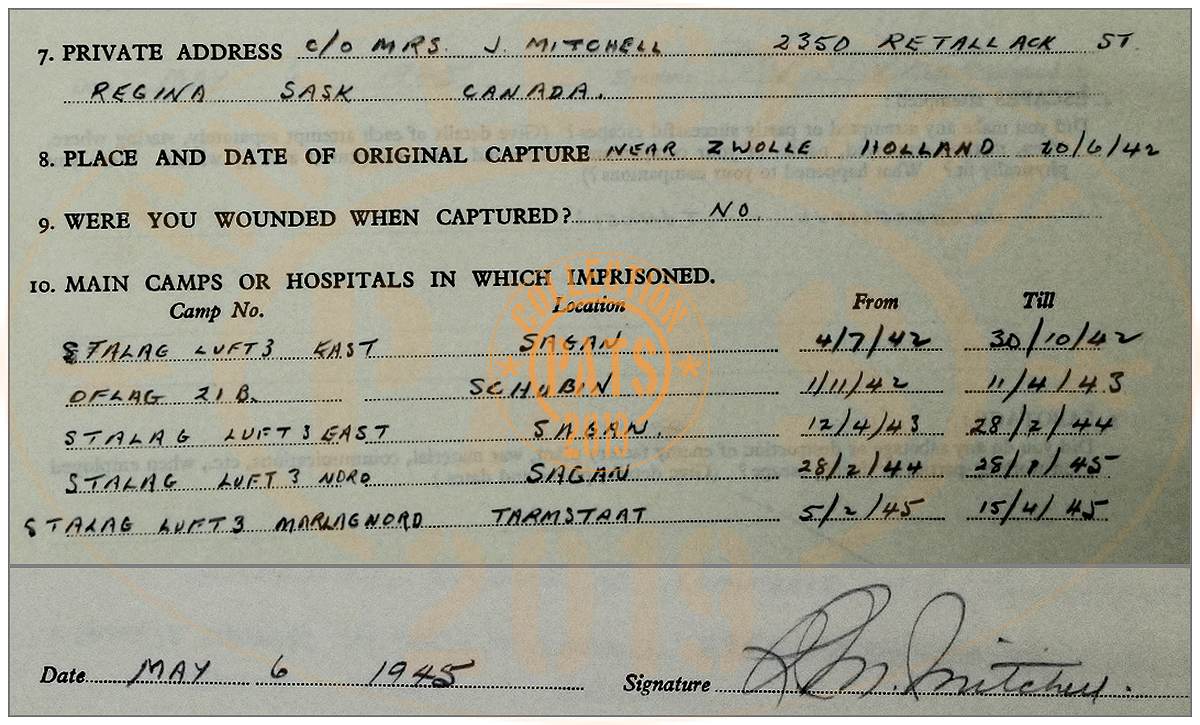 7. PRIVATE ADDRESS C/O MRS. J. MITCHELL 2350 RETALLACK ST.
REGINA SASK CANADA.
8. PLACE AND DATE OF ORIGINAL CAPTURE NEAR ZWOLLE HOLLAND 20/6/42
9. WERE YOU WOUNDED WHEN CAPTURED? NO.
10. MAIN CAMPS OR HOSPITALS IN WHICH IMPRISONED.
Camp No. Location From Till
STALAG LUFT 3 EAST SAGAN 4/7/42 30/10/42
OFLAG 21 B. SCHUBIN 1/11/42 11/4/43
STALAG LUFT 3 EAST SAGAN. 12/4/43 28/2/44
STALAG LUFT 3 NORD SAGAN 28/2/44 28/1/45
STALAG LUFT 3 MARLAG NORD TARMSTAAT 5/2/45 15/4/45
COLLECTION
PATS
2019
Date MAY 6 1945 Signature R M. Mitchell.